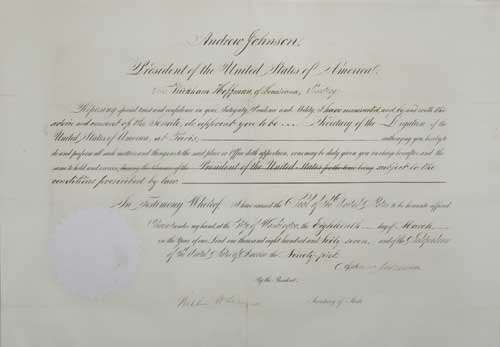 Andrew Johnson,
President of the United States of America,
To Wickham Hoffman, of Louisiana, Greeting:
Reposing special trust and confidence in your Integrity, Prudence and Ability, I have nominated, and by and with the
advice and consent of the Senate, do appoint you to be Secretary of the Legation of the
United States of America, at Paris, authorizing you hereby to
do and perform all such matters and things as to the said place or Office doth appertain, or as may be duly given you in charge hereafter, and the
same to hold and exercise, during the pleasure of the President of the United States for the time being subject to the
conditions prescribed by law.
In Testimony Whereof, I have caused the Seal of the United States to be hereunto affixed.
Given under my hand at the City of Washington, the Eighteenth day of March,
in the Year of our Lord one thousand eight hundred and sixty seven, and of the Independence
of the United States of America the Ninety first.
Andrew Johnson
By the President:
Secretary of State